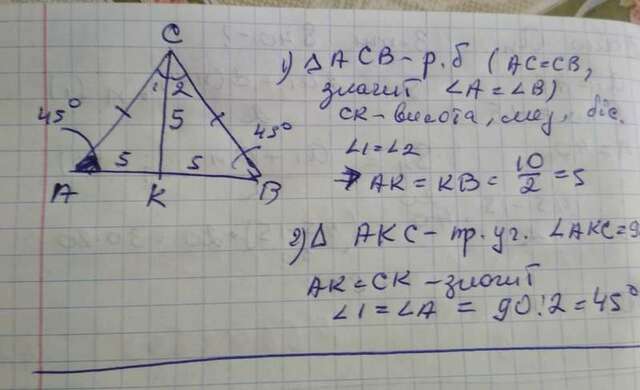 C
1 2
45° 5 45°
5 5
A K B
1) Δ ACB - р.б ( AC=CB,
значит ∠A = ∠B)
CK - висота, мед, біс.
∠1=∠2
AK = KB = 10/2 = 5
2) Δ AKC - пр. уг. ∠AKC=9
AK = CK - значит
∠1 = ∠A = 90:2 = 45°